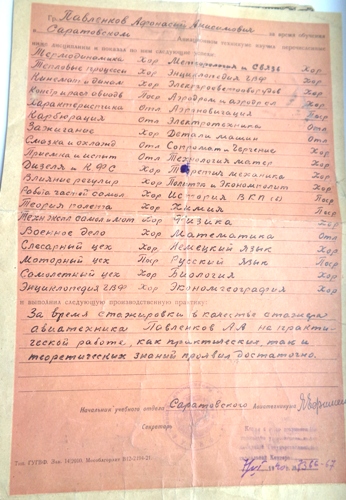 Гр. Павленков Афонасий Анисимович за время обучения
в Саратовском Авиационном техникуме изучил перечисленные
ниже дисциплины и показал по ним следующие успехи:
Термодинамика Хор Метеорология и связь Хор
Тепловые процессы Хор Энциклопедия ГВФ Хор
Кинемат. и динам. Хор Электрооборудов Хор
Хор Аэродром и аэродр. сл Хор
Характеристика Отл Аэронавигация Пыр
Карбюрация Отл Электротехника Отл
Зажигание Хор Детали машин Отл
Смазка и охлажд Отл Сопромат и Черчение Хор
Приемка и испыт Отл Технология матер Хор
Дизеля и Хор механика Хор
Влияние регулир Хор Политэк и Экономполит Хор
Работа частей самол. Хор История ВКП(б) Пыр
Теория полета Хор Химия Пыр
Тех. экспл. самол и мот Хор Физика Хор
Военное дело Хор Математика Отл
Слесарный цех Хор Немецкий язык Хор
Моторный цех Пыр Русский язык Пыр
Самолетный цех Хор Биология Хор
Энциклопедия ГВФ Хор Экономгеография Хор
и выполнил следующую производственную практику:
За время стажировки в качестве стажера
авиатехника Павленков А.А на практи-
ческой работе, как практические, так и
теоретических знаний проявил достаточно.
Начальник учебного отдела Саратовского Авиатехникума
Секретарь